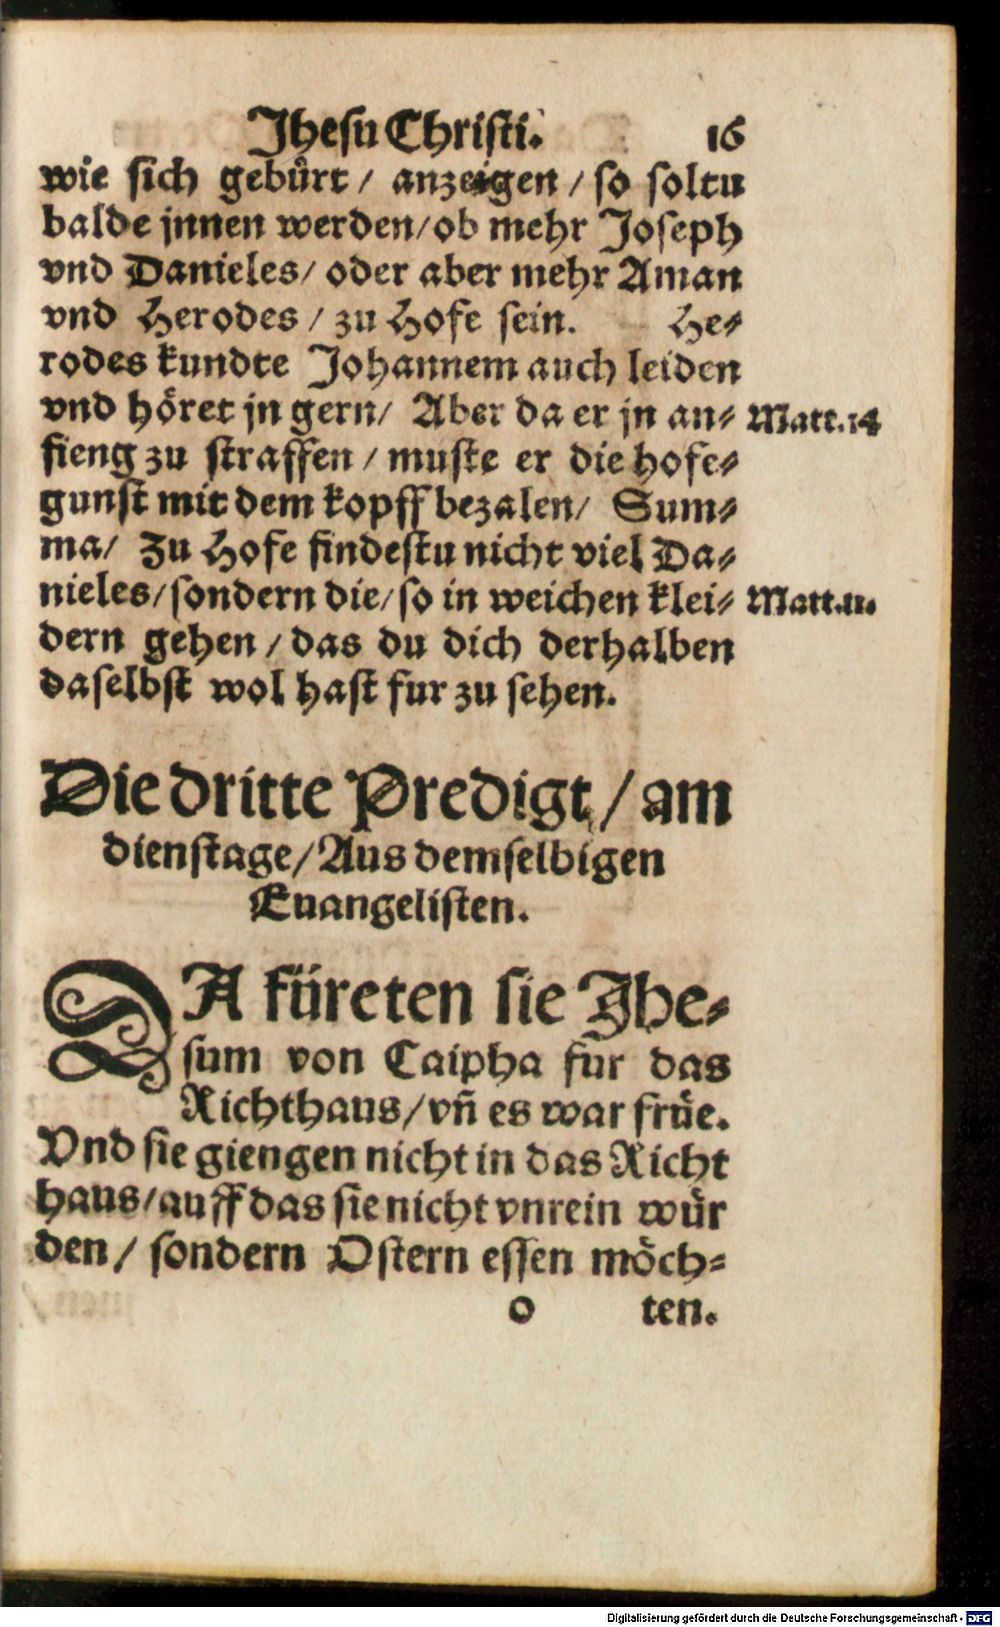 Jhesu Christi. 16
wie sich gebürt / anzeigen / so soltu
balde jnnen werden / ob mehr Joseph
vnd Danieles / oder aber mehr Aman
vnd Herodes / zu Hofe sein. He⸗
rodes kundte Johannem auch leiden
vnd höret jn gern / Aber da er jn an⸗ Matt.14
fieng zu straffen / muste er die hofe⸗
gunst mit dem kopff bezalen / Sum⸗
ma / Zu Hofe findestu nicht viel Da⸗
nieles / sondern die / so in weichen klei⸗ Matt.11.
dern gehen / das du dich derhalben
daselbst wol hast fur zu sehen.
Die dritte Predigt / am
dienstage / Aus demselbigen
Euangelisten.
DA füreten sie Jhe⸗
sum von Caipha fur das
Richthaus / vñ es war früe.
Vnd sie giengen nicht in das Richt
haus / auff das sie nicht vnrein wür
den / sondern Ostern essen möch⸗
o ten.
Digitalisierung gefördert durch die Deutsche Forschungsgemeinschaft - DFG